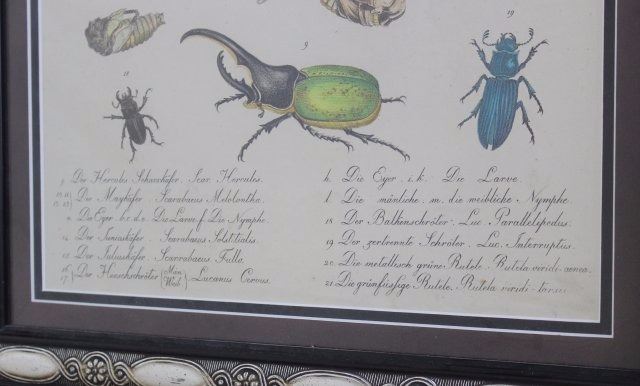 19
9
18
9 Der Hercules Scharrkäfer. Scar. Hercules.
10. 11. Die Maykäfer. Scarabaeus Melolontha.
Die Eyer. b. c. d. e. Die Larve f. Die Nymphe.
14 Der Juniuskäfer. Scarabaeus Solstitialis.
15 Der Juliuskäfer. Scarrabaeus Fullo.
16 17 Der Hirschschröter Män. Weib Lucanus Cervus.
h. Die Eyer. i. k. Die Larve.
l. Die mänliche. m. die weibliche Nymphe.
18 Der Balkenschröter. Luc. Parallelepedus.
19 Der zerbrennte Schröter. Luc. Interruptus.
20 Die metallisch grüne Rutele. Rutela viridi-aenea.
21 Die grünfüssige Rutele. Rutela viridi-tarsis